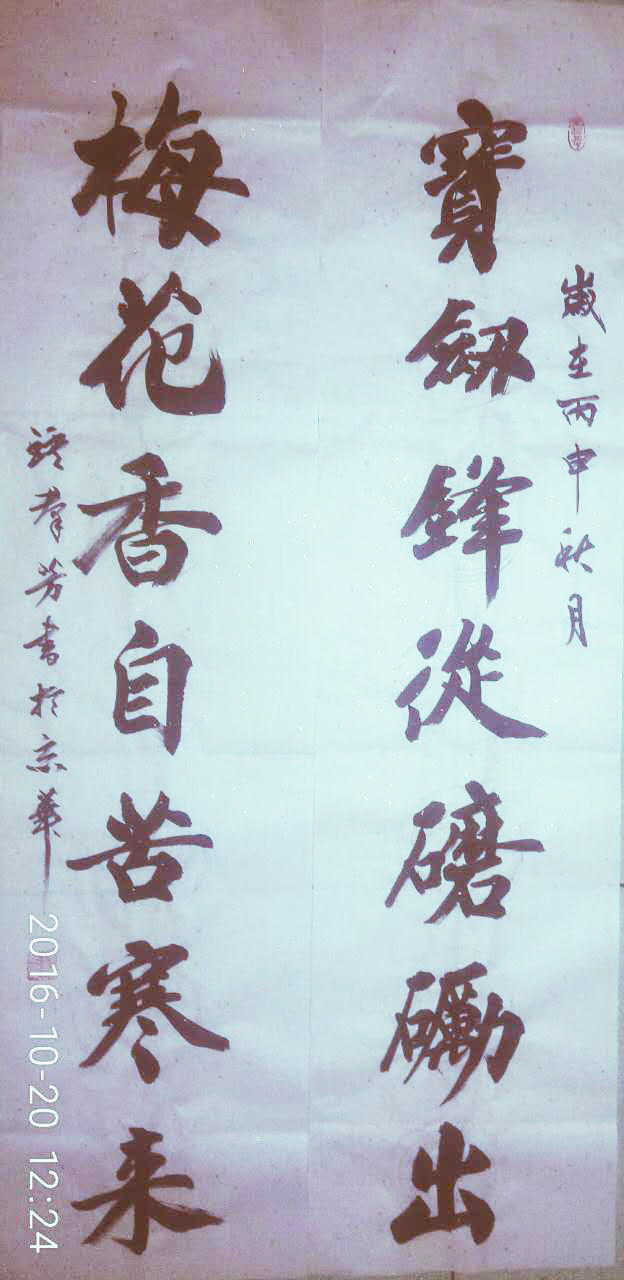 歲在丙申秋月
寶劔鋒從磨礪出
梅花香自苦寒来
羣芳書於京華
2016-10-20 12:24